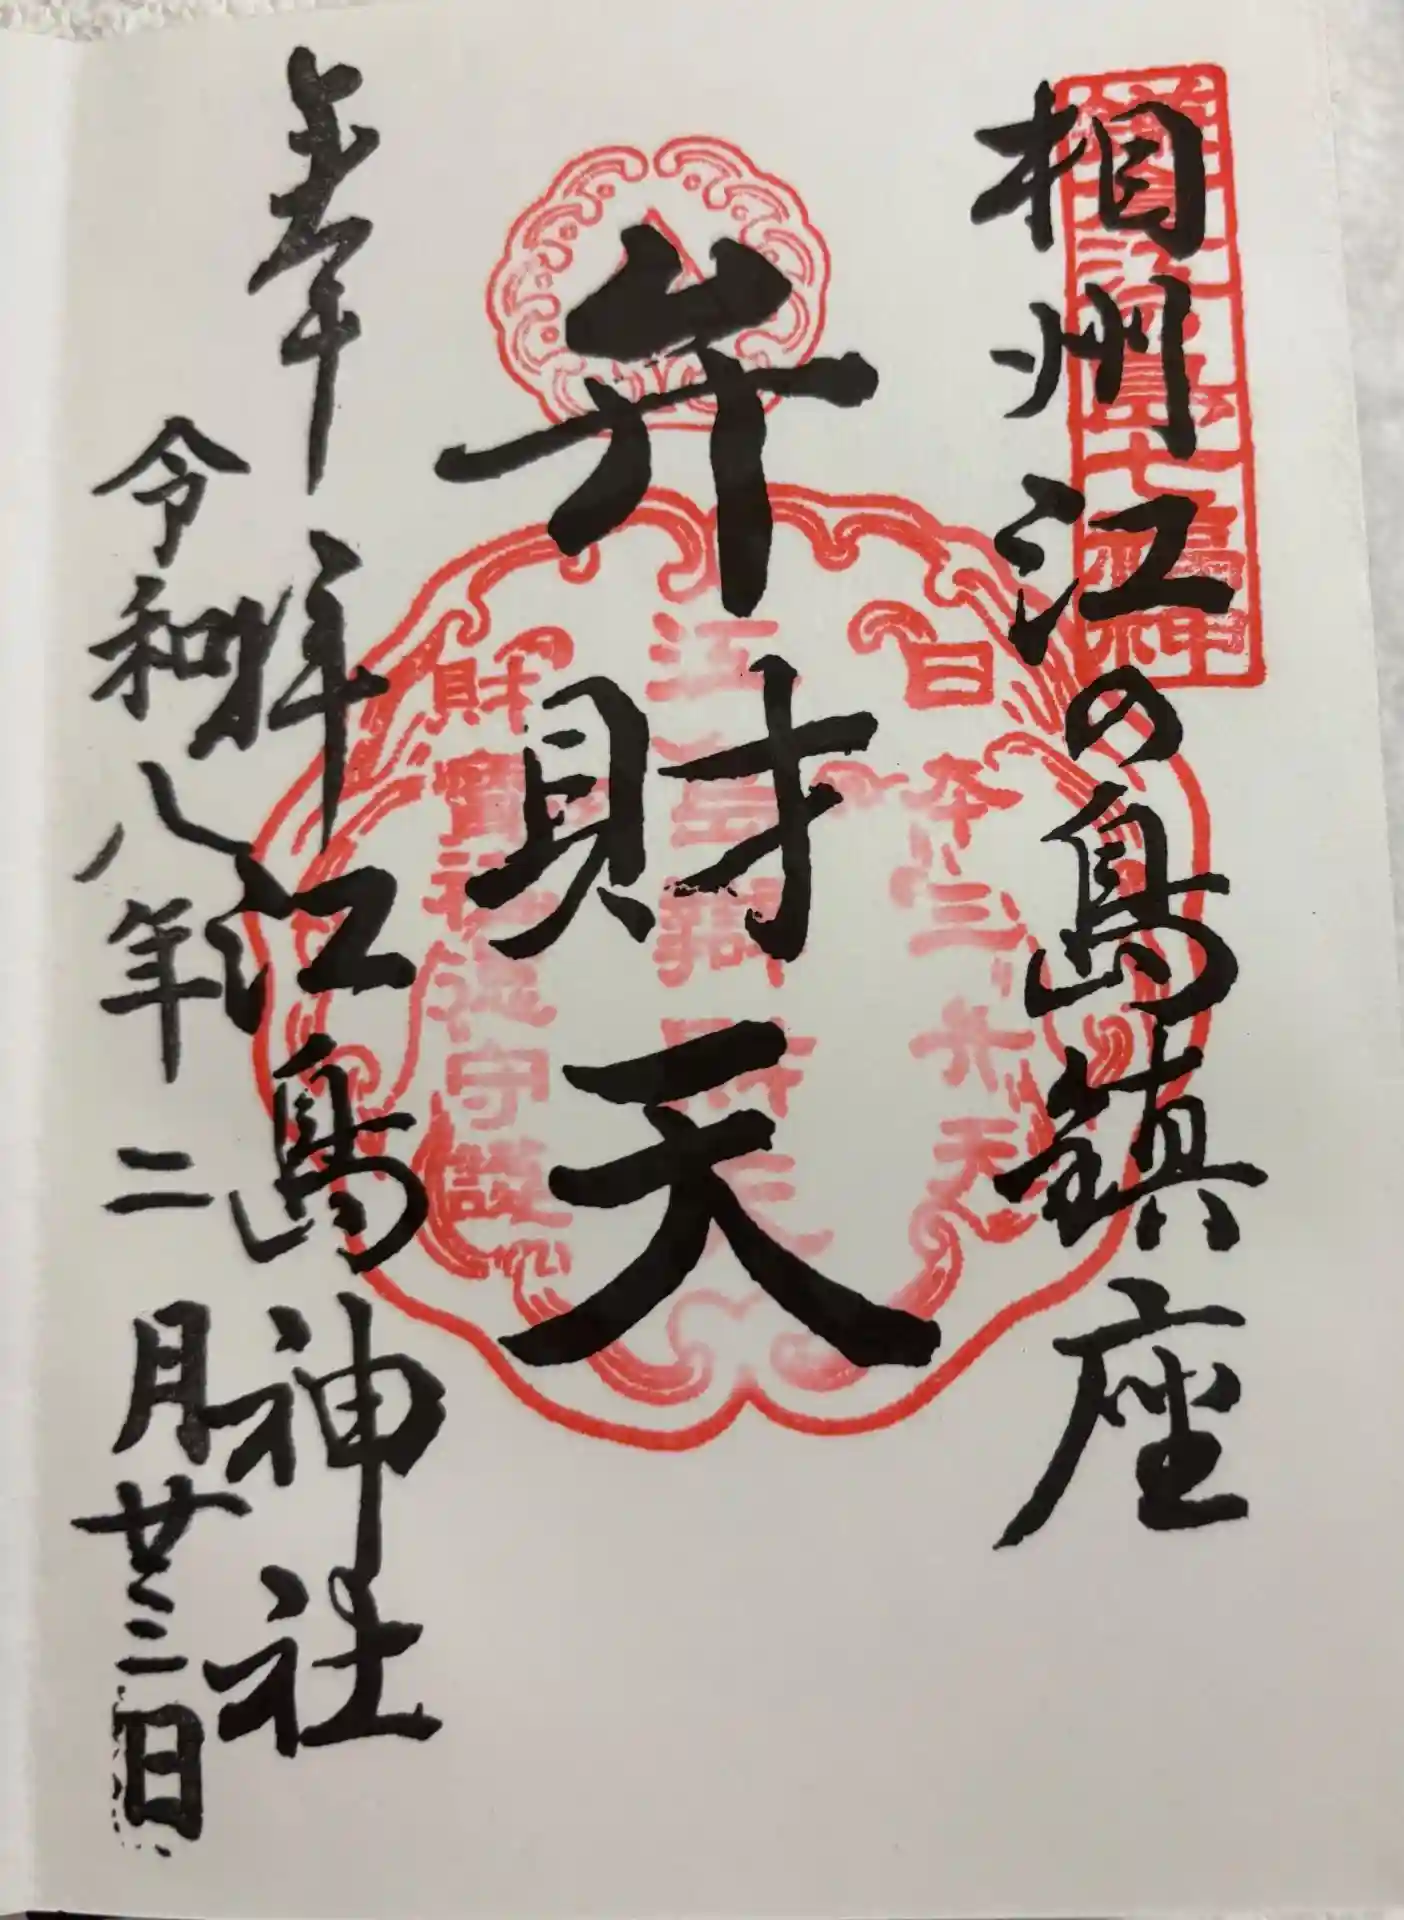 相州江の島鎮座
鎌倉江の島七福神
弁財天
日本三弁天
財寶福徳守護
奉拝
江島神社
令和八年二月廿三日